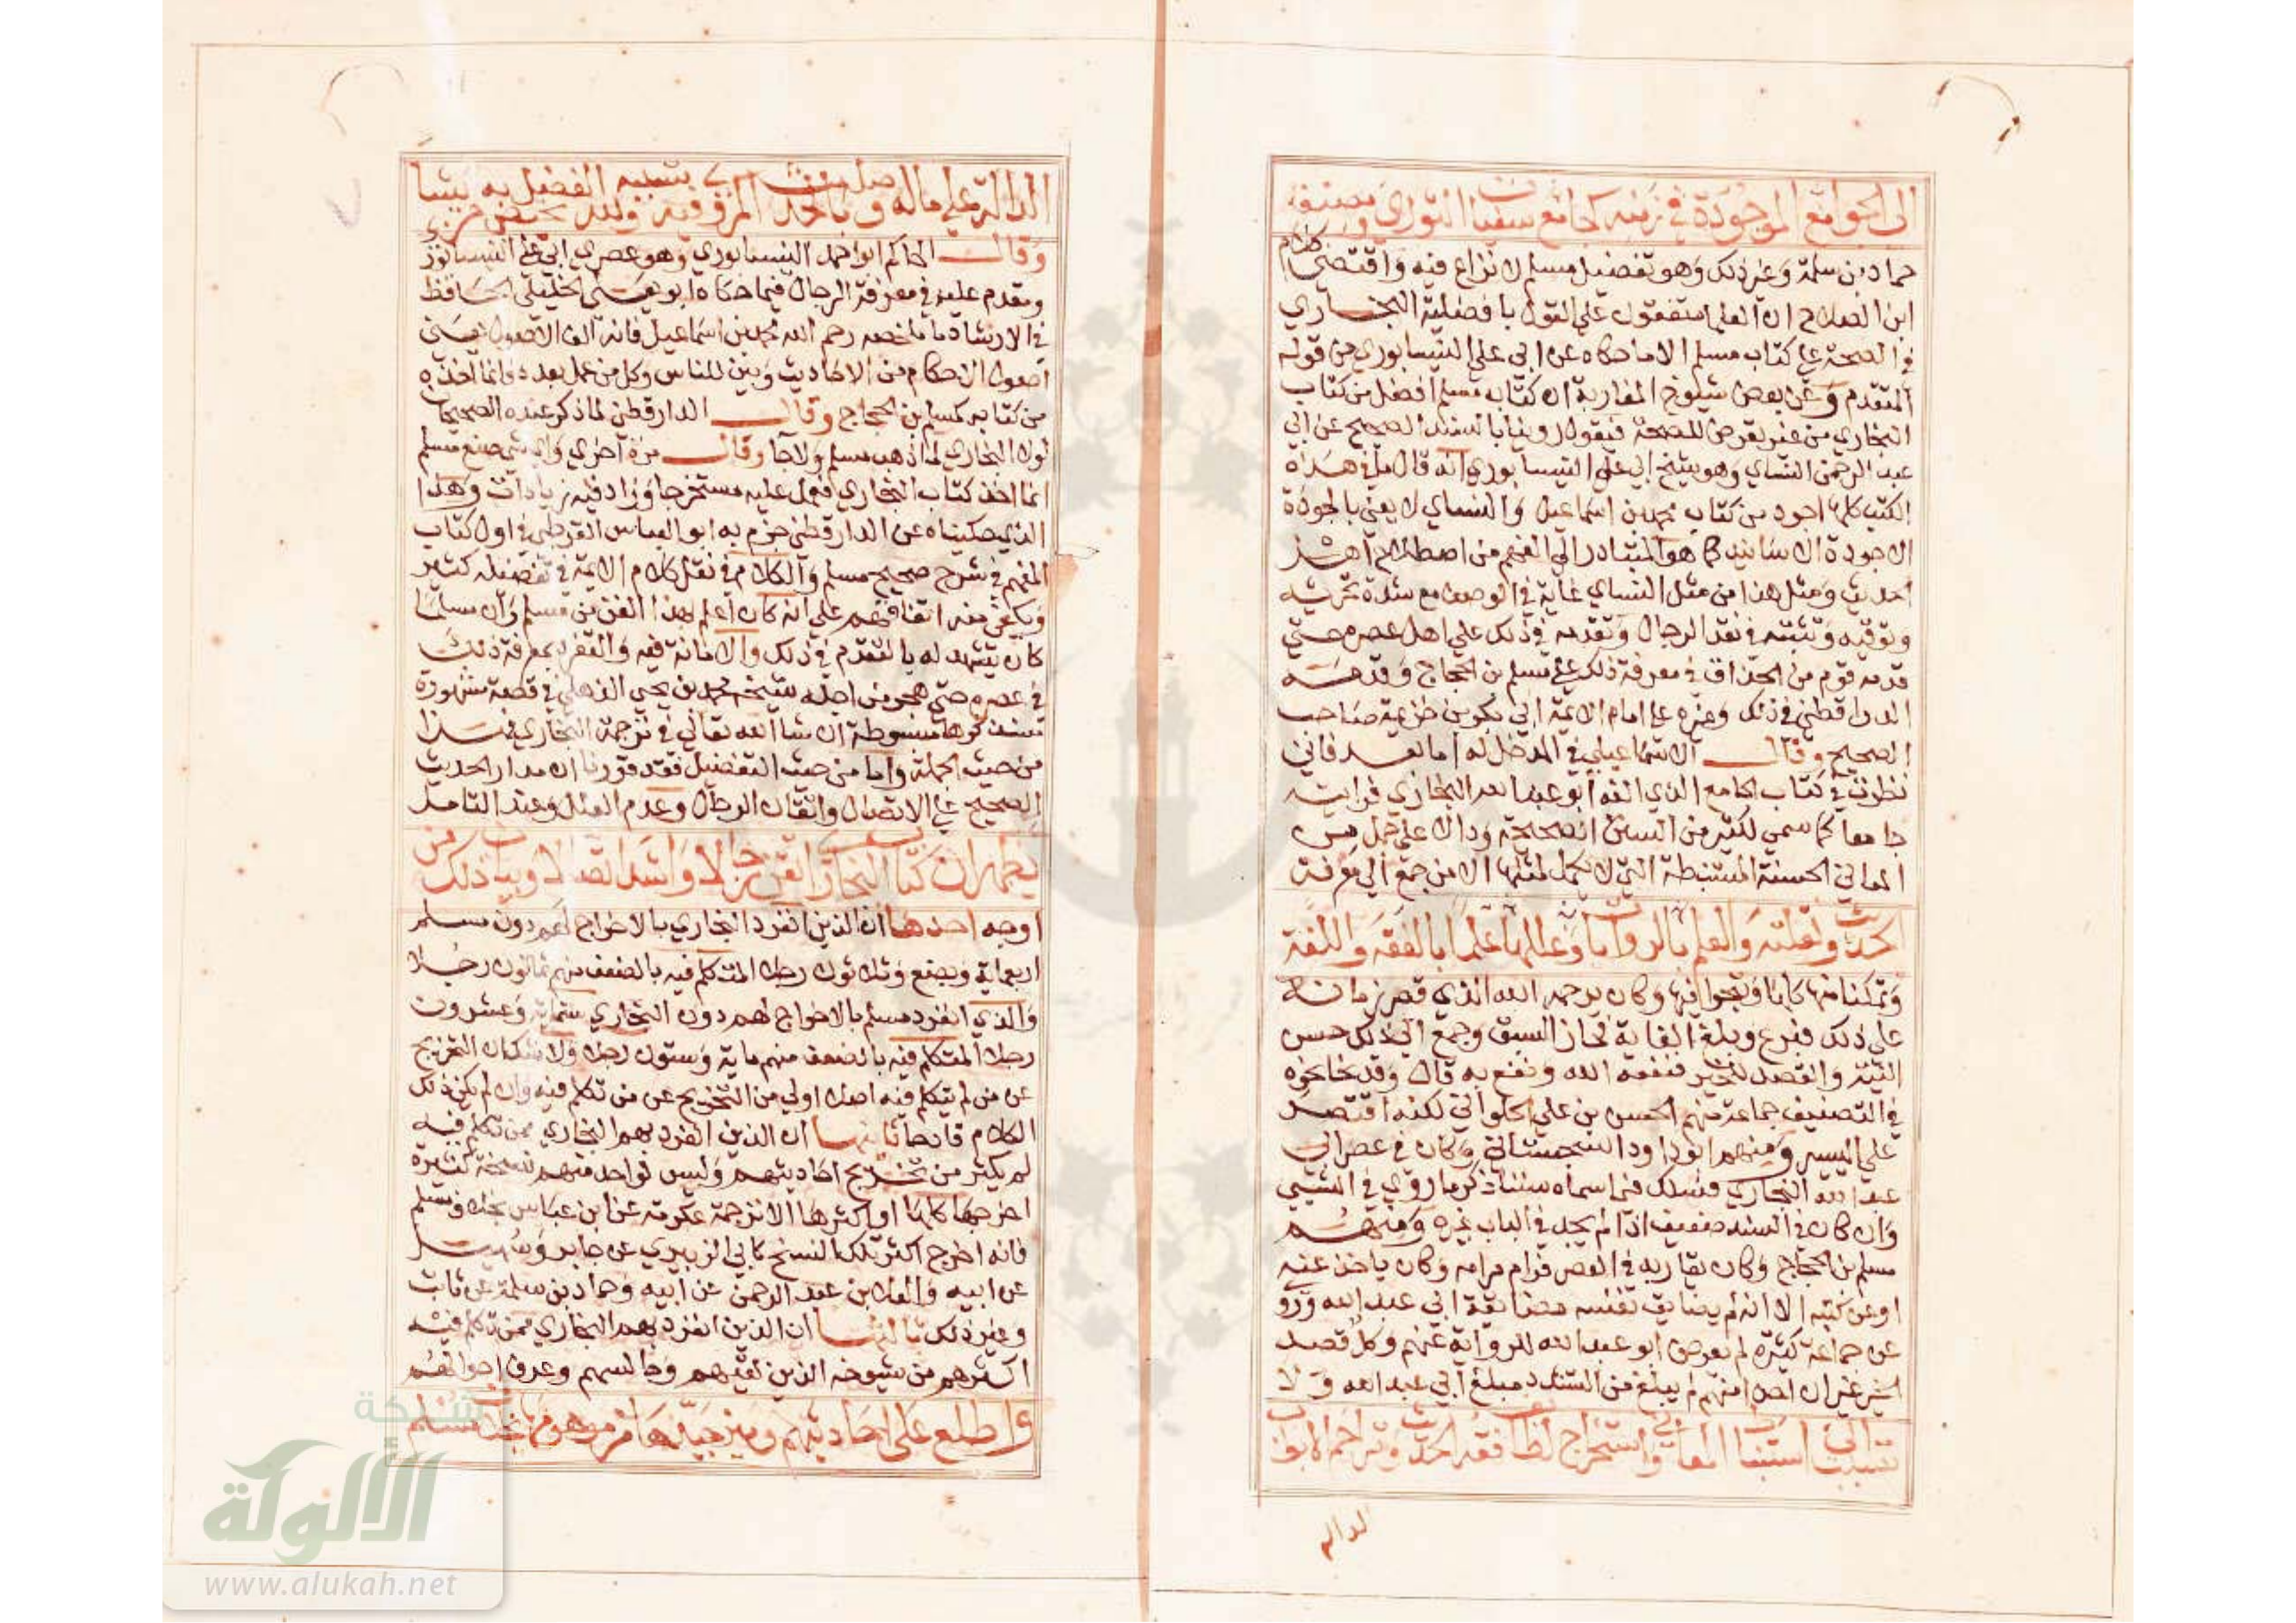 الى الجوامع الموجودة في زمنه كجامع سفيان الثوري ومصنف
حماد بن سلمة وغير ذلك وهو تفضيل مسلم لا نزاع فيه واقتضى كلام
ابن الصلاح ان العلما متفقون علي القول بافضلية البخاري
في الصحة علي كتاب مسلم الا ما حكاه عن ابي علي النيسابوري من قوله
المتقدم وعن بعض شيوخ المغاربة ان كتاب مسلم افضل من كتاب
البخاري من غير تعرض للصحة فنقول روينا بالسند الصحيح عن ابي
عبد الرحمن النساي وهو شيخ ابي علي النيسابوري انه قال ما في هذه
الكتب كلها اجود من كتاب محمد بن اسماعيل والنساي لا يعني بالجودة
الا جودة الاسانيد كما هو المتبادر الي الفهم من اصطلاح اهل
الحديث ومثل هذا من مثل النساي غاية في الوصف مع شدة تحريه
وتوقيه وتثبته في نقد الرجال وتقدمه في ذلك علي اهل عصره حتي
قدمه قوم من الحذاق في معرفة ذلك علي مسلم بن الحجاج وقدمه
الدارقطني في ذلك وغيره علي امام الايمة ابي بكر بن خزيمة صاحب
الصحيح وقال الاسماعيلي في المدخل له اما بعد فاني
نظرت في كتاب الجامع الذي الفه ابو عبد الله البخاري فرايته
جامعا كما سمي لكثير من السنن الصحيحة ودالا علي جمل من
المعاني الحسنة المستنبطة التي لا يكمل لمثلها الا من جمع الي معرفة
الحديث ونقلته والعلم بالروايات وعللها علما بالفقه واللغة
وتمكنا منها كلها وتبحرا فيها وكان يرحمه الله الذي قصر زمانه
علي ذلك فبرع وبلغ الغاية فحاز السبق وجمع الي ذلك حسن
النية والقصد للخير فنفعه الله ونفع به قال وقد نحا نحوه
في التصنيف جماعة منهم الحسن بن علي الحلواني لكنه اقتصر
علي اليسير ومنهم ابو داود السجستاني وكان في عصر ابي
عبد الله البخاري فسلك فيما سماه سننا ذكر ما روي في الشيي
وان كان في السند ضعيف اذا لم يجد في الباب غيره ومنهم
مسلم بن الحجاج وكان يقاربه في العصر فرام مرامه وكان ياخذ عنه
او عن كتبه الا انه لم يضايق نفسه مضايقة ابي عبد الله ورو
عن جماعة كثيرة لم يعرض ابو عبد الله للرواية عنهم وكل قصد
الخير غير ان احدا منهم لم يبلغ من التشدد مبلغ ابي عبد الله ولا
تسبب الي استنباط المعاني واستخراج لطايف فقه الحديث وتراجم الابواب
الداله
الدالة علي ماله وصلة بالحديث المروي فيه ولله الفضل يختص به من يشا
وقال الحاكم ابو احمد النيسابوري وهو عصري ابي علي النيسابوري
ومقدم عليه في معرفة الرجال فيما حكاه ابو يعلي الخليلي الحافظ
في الارشاد ما ملخصه رحم الله محمد بن اسماعيل فانه الف الاصول يعني
اصول الاحكام من الاحاديث وبين للناس وكل من عمل بعده فانما اخذه
من كتابه كمسلم بن الحجاج وقال الدارقطني لما ذكر عنده الصحيحان
لولا البخاري لما ذهب مسلم ولا جا وقال مرة اخري واي شي صنع مسلم
انما اخذ كتاب البخاري فعمل عليه مستخرجا وزاد فيه زيادات وهذا
الذي حكيناه عن الدارقطني جزم به ابو العباس القرطبي في اول كتاب
المفهم في شرح صحيح مسلم والكلام في نقل كلام الايمة في تفضيله كثير
ويكفي منه اتفاقهم علي انه كان اعلم بهذا الفن من مسلم وان مسلما
كان يشهد له بالتقدم في ذلك والامامة فيه والتفرد بمعرفة ذلك
في عصره حتي هجر من اجله شيخه محمد بن يحيي الذهلي في قصة مشهورة
سنذكرها مبسوطة ان شا الله تعالي في ترجمة البخاري فهذا
من حيث الجملة واما من حيث التفضيل فقد قررنا ان مدار الحديث
الصحيح علي الاتصال واتقان الرجال وعدم العلل وعند التامل
يظهر ان كتاب البخاري اتقن رجالا واشد اتصالا وبيان ذلك من
اوجه احدها ان الذين انفرد البخاري بالاخراج لهم دون مسلم
اربعماية وبضع وثلاثون رجلا المتكلم فيه بالضعف منهم ثمانون رجلا
والذي انفرد مسلم بالاخراج لهم دون البخاري ستماية وعشرون
رجلا المتكلم فيه بالضعف منهم ماية وستون رجلا ولا شك ان التخريج
عن من لم يتكلم فيه اصلا اولي من التخريج عن من تكلم فيه وان لم يكن ذلك
الكلام قادحا ثانيها ان الذين انفرد بهم البخاري ممن تكلم فيه
لم يكثر من تخريج احاديثهم وليس لواحد منهم نسخة كثيرة
اخرجها كلها او اكثرها الا ترجمة عكرمة عن ابن عباس بخلاف مسلم
فانه اخرج اكثر تلك النسخ كابي الزبير عن جابر وسهيل
عن ابيه والعلا بن عبد الرحمن عن ابيه وحماد بن سلمة عن ثابت
وغير ذلك ثالثها ان الذين انفرد بهم البخاري ممن تكلم فيه
اكثرهم من شيوخه الذين لقيهم وجالسهم وعرف احوالهم
واطلع علي احاديثهم وميز جيدها من موهومها بخلاف مسلم
شبكة
الألوكة
www.alukah.net